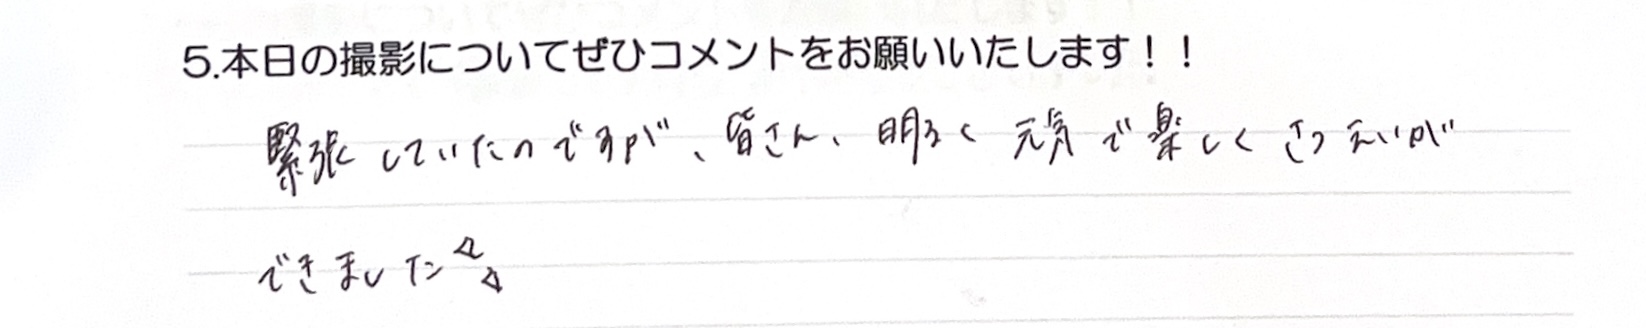 5.本日の撮影についてぜひコメントをお願いいたします！！
緊張していたのですが、皆さん、明るく元気で楽しくさつえいが
できました